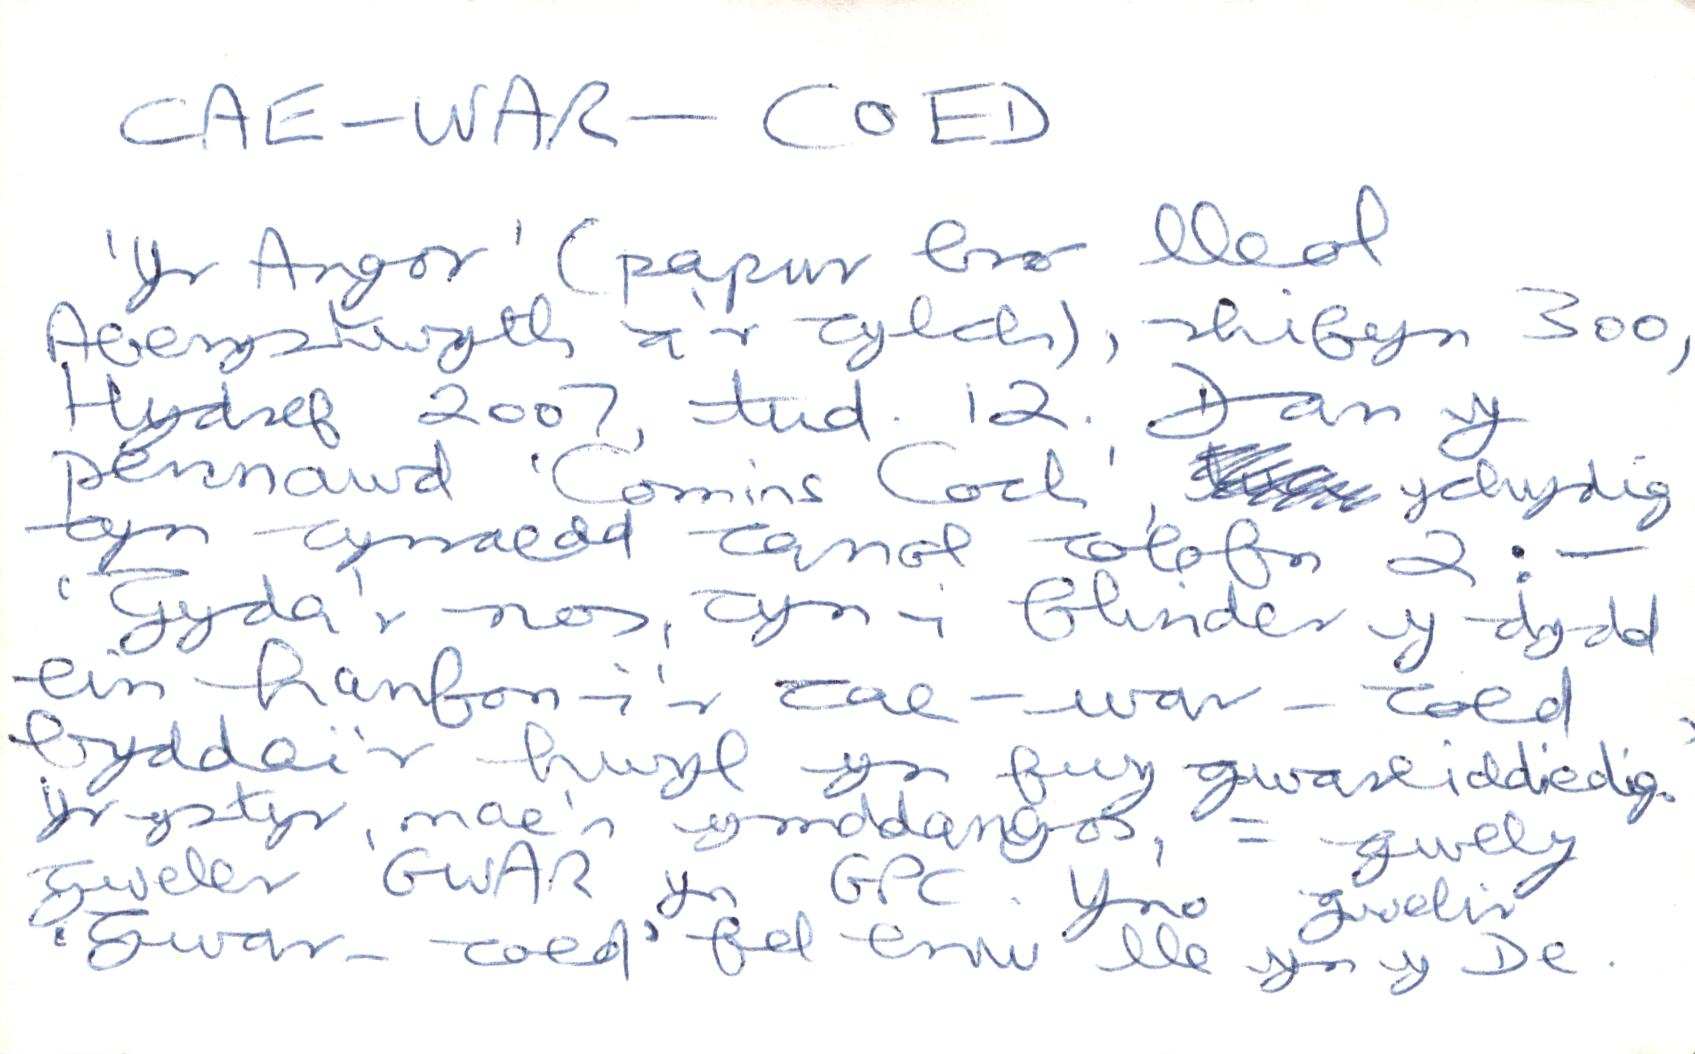 CAE-WAR-COED
'Yr Angor' (papur bro lleol
Aberystwyth a'r cylch), rhifyn 300,
Hydref 2007, tud. 12. Dan y
pennawd 'Comins Coch', ychydig
cyn cyrraedd canol colofn 2 :-
'Gyda'r nos, cyn i flinder y dydd
ein hanfon i'r cae-war-coed
byddai'r hwyl yn fwy gwareiddiedig.'
Yr ystyr, mae'n ymddangos, = gwely
gweler GWAR yn GPC. Yno gwelir
'Gwar-coed' fel enw lle yn y De.